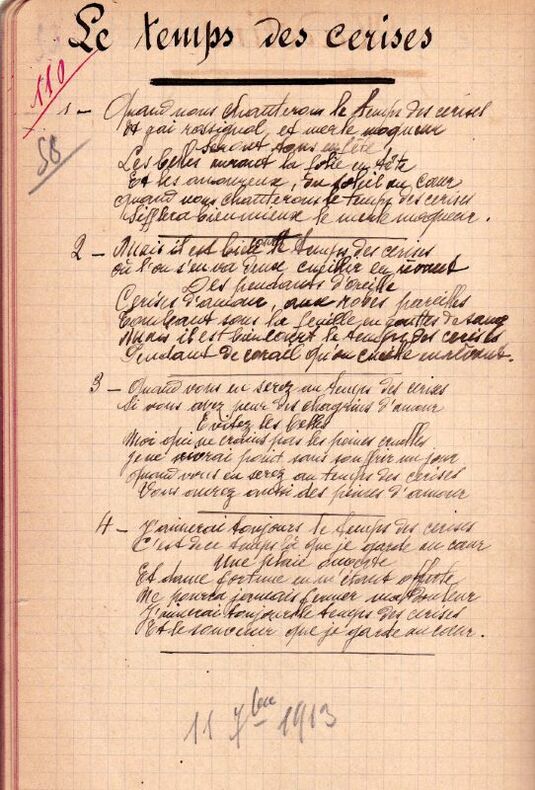 Le temps des cerises
110
58
1 — Quand nous chanterons le temps des cerises
Et gai rossignol, et merle moqueur
Seront tous en fête
Les belles auront la folie en tête
Et les amoureux, du soleil au cœur
Quand nous chanterons le temps des cerises
Sifflera bien mieux le merle moqueur.
2 — Mais il est bien court le temps des cerises
où l'on s'en va deux cueillir en rêvant
Des pendants d'oreille
Cerises d'amour, aux robes pareilles
Tombant sous la feuille en gouttes de sang
Mais il est bien court le temps des cerises
Pendant de corail qu'on cueille en rêvant.
3 — Quand vous en serez au temps des cerises
Si vous avez peur des chagrins d'amour
Evitez les belles
Moi qui ne crains pas les peines cruelles
Je ne vivrai point sans souffrir un jour
Quand vous en serez au temps des cerises
Vous aurez aussi des peines d'amour
4 — J'aimerai toujours le temps des cerises
C'est de ce temps là que je garde au cœur
Une plaie ouverte
Et dame fortune en m'étant offerte
Ne pourra jamais fermer ma douleur
J'aimerai toujours le temps des cerises
Et le souvenir que je garde au cœur.
11 7bre 1913